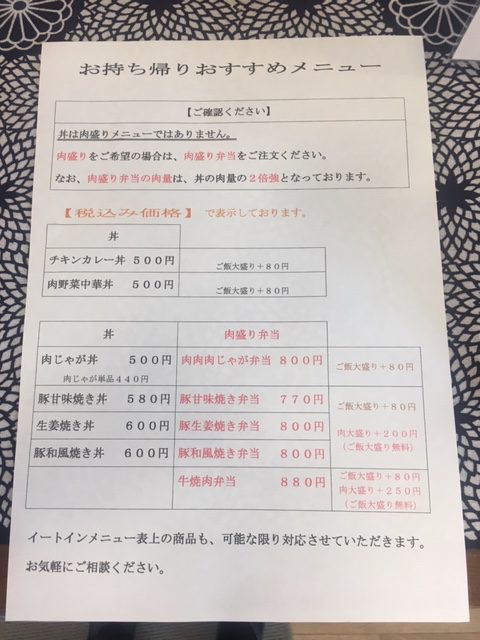 お持ち帰りおすすめメニュー
【ご確認ください】
丼は肉盛りメニューではありません。
肉盛りをご希望の場合は、肉盛り弁当をご注文ください。
なお、肉盛り弁当の肉量は、丼の肉量の２倍強となっております。
【税込み価格】で表示しております。
丼
チキンカレー丼 ５００円 ご飯大盛り＋８０円
肉野菜中華丼 ５００円 ご飯大盛り＋８０円
丼 肉盛り弁当
肉じゃが丼 ５００円 肉肉肉じゃが弁当 ８００円 ご飯大盛り＋８０円
肉じゃが単品４４０円
豚甘味焼き丼 ５８０円 豚甘味焼き弁当 ７７０円 ご飯大盛り＋８０円
生姜焼き丼 ６００円 豚生姜焼き弁当 ８００円 肉大盛り＋２００円
（ご飯大盛り無料）
豚和風焼き丼 ６００円 豚和風焼き弁当 ８００円
牛焼肉弁当 ８８０円 ご飯大盛り＋８０円
肉大盛り＋２５０円
（ご飯大盛り無料）
イートインメニュー表上の商品も、可能な限り対応させていただきます。
お気軽にご相談ください。